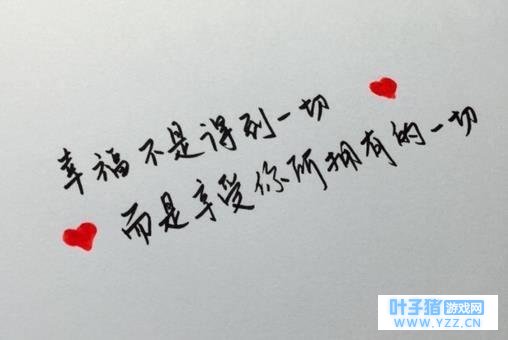 幸福不是得到一切
而是享受你所拥有的一切
叶子猪游戏网
WWW.YZZ.CN